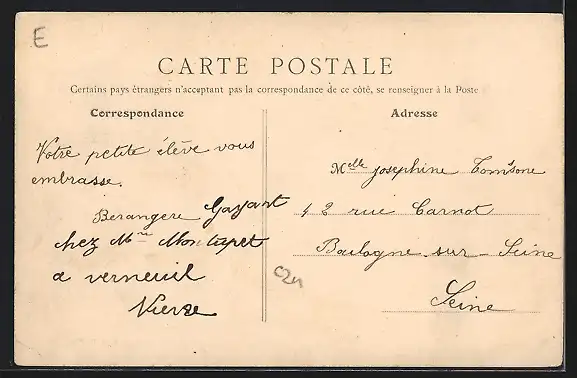 E
CARTE POSTALE
Certains pays étrangers n'acceptant pas la correspondance de ce côté, se renseigner à la Poste
Correspondance
Votre petite élève vous
embrasse.
Berangere Gayant
chez Mme Montupet
a verneuil
Adresse
Melle Josephine
42 rue Carnot
Boulogne-sur-Seine
Seine